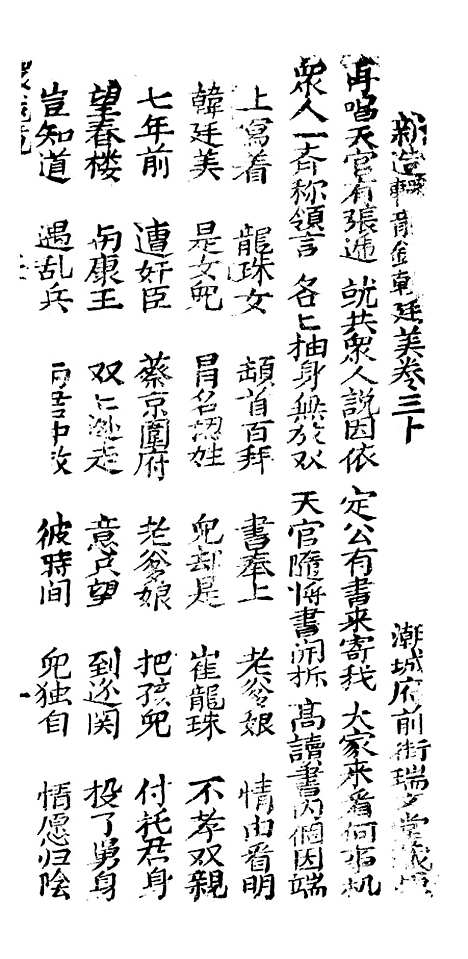 新造韓廷美卷三卜 潮城府前街瑞文堂藏
再唱天官有張遞 就共衆人說因依 定公有書来寄我 大家来看何事机
衆人一斉称領言 各匕抽身無放双 天官隨将書開拆 高讀書内個因端
上寫着 龍珠女 頓首百拜 書奉上 老爹娘 情由看明
韓廷美 是女兒 冐名認姓 兒却是 崔龍珠 不孝双親
七年前 遭奸臣 蔡京圍府 老爹娘 把孩兒 付託君身
望春楼 康王 双匕逃走 意只望 到边関 投了男身
豈知道 遇乱兵 彼時间 兒独自 情愿归陰